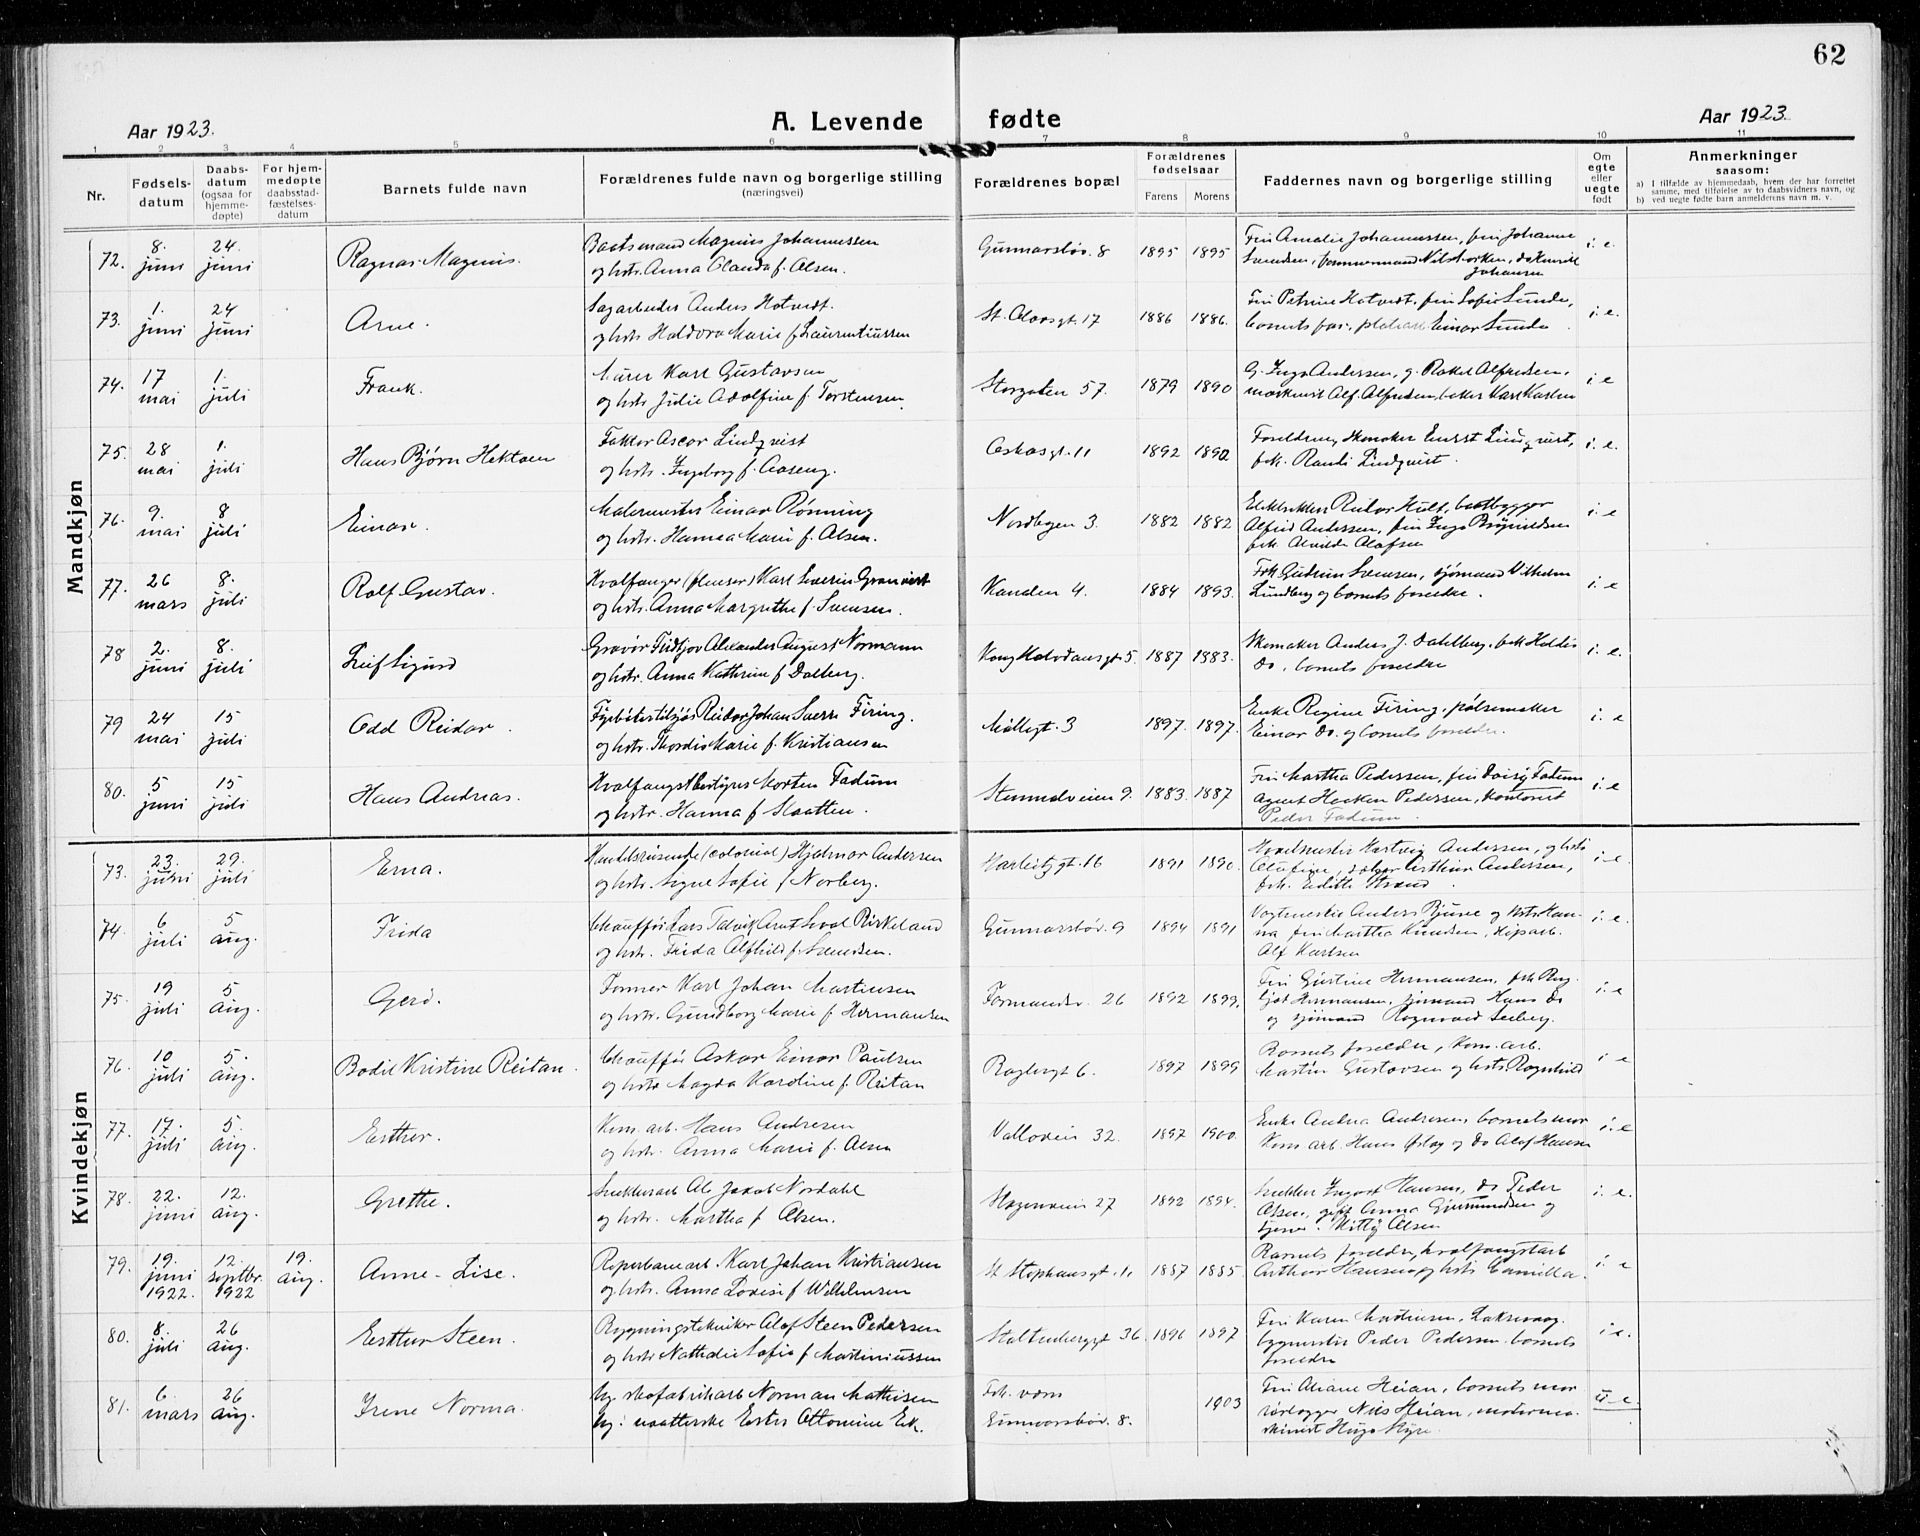 62
Aar 1923.
A. Levende fødte
Aar 1923.
1 2 3 4 5 6 7 8 9 10 11
Nr.
Fødsels-
datum
Daabs-
datum
(ogsaa for
hjemme-
døpte)
For hjem-
medøpte
daabsstad-
fæstelses-
datum
Barnets fulde navn
Forældrenes fulde navn og borgerlige stilling
(næringsvei)
Forældrenes bopæl
Forældrenes
fødselsaar
Farens Morens
Faddernes navn og borgerlige stilling
Om
egte
eller
uegte
født
Anmerkninger
saasom:
a) I tilfælde av hjemmedaab, hvem der har forrettet
samme, med tilføielse av to daabsvidners navn, og
b) ved uegte fødte barn anmelderens navn m. v.
Mandkjøn
72. 8. juni 24. juni Ragnar Magnus. Baatsmand Magnus Johannessen
og hstr. Anna Olanda f. Olsen. Gunnarsbøv. 8 1895 1895 Fru Amalie Johannessen, fru Johanne
Svendsen, tømmermand Nils Torken, do Henrik
Johansen i. e.
73. 1. juni 24 juni Arne. Sagarbeider Anders Hotvedt.
og hstr. Haldora Marie f. Laurentiussen St. Olavsgt. 17 1886 1886. Fru Petrine Hotvedt, fru Sofie Sunde,
barnets far, Einar Sunde i. e.
74. 17 mai 1. juli Frank. Murer Karl Gustavsen
og hstr. Julie Adolfine f. Torstensen. Storgaten 57. 1879 1890 G. Inga Andersen, g. Rakel Alfredsen,
maskinist Alf. Alfredsen, Karl Karlsen i. e
75. 28 mai 1. juli Hans Bjørn Hektoen Faktor Oscar Lindqvist
og hstr. Ingeborg f. Aaseng. Askasgt. 11 1892 1892 Foreldrene, Ernst Lindqvist,
frk. Randi Lindqvist. i. e.
76. 9. mai 8 juli Einar. Malermester Einar Rønning
og hstr. Hanna Marie f. Olsen. Nordbyen 3. 1882 1882 Elektriker Reidar Hult, baatbygger
Alfred Andersen, fru Inga Brynildsen
frk. Alvilde Olafsen i. e
77. 26 mars 8. juli Rolf Gustav. Hvalfanger (flenser) Karl Severin Granvist
og hstr. Anna Margrethe f. Svensen. Kanalen 4. 1884 1893. Frk Gudrun Svensen, sjømand Vilhelm
Lundberg og barnets foreldre. i. e
78 2. juni 8. juli Leif Sigurd Gravør Fridtjov Alexander August Normann
og hstr. Anna Kathrine f. Dalberg. Kong Halvdansgt. 5. 1887 1883. Skomaker Anders J. Dahlberg, frk Haldis
Do, barnets foreldre i. e.
79 24 mai 15 juli Odd Reidar. Fyrbøter tilsjøs Reidar Johan Sverre Firing.
og hstr. Thordis Marie f. Kristiansen Møllegt. 3 1897. 1897. Enke Regine Firing, pølsemaker
Einar Do. og barnets foreldre. i. e
80. 5 juni 15 juli Hans Andreas. Hvalfangstbestyrer Morten Fadum
og hstr. Hanna f. Slaatten. 9. 1883. 1887 Fru Martha Pedersen, fru Daisy Fadum
agent Haakon Pedersen, kontorist
Peder Fadum. i. e
Kvindekjøn
73. 23. juni 29. juli Erna. Handelsreisende (colonial) Hjalmar Andersen
og hstr. Signe Sofie f. Norberg. Harbitzgt. 16 1891 1890. Hartvig Andersen, og hstr
Olufine, Arthur Andersen,
frk. Edith Strand. i. e.
74. 6 juli 5 aug. Frida Chauffør Lars Birkeland
og hstr. Frida Alfhild f. Svendsen. Gunnarsbøv. 9 1894 1891 Vogtmester Anders Bjune og hstr Han-
na, fru Martha Knudsen,
Alf Karlsen i. e.
75. 19 juli 5 Aug. Gerd. Former Karl Johan Martinsen
og hstr. Gundborg Marie f. Hermansen Formandsv. 26 1892 1899. Fru Gustine Hermansen, frk Berg-
ljot Hermansen, sjømand Hans Do
og sjømand Ragnvald Seeberg. i. e
76. 10 juli 5. Aug. Bodil Kristine Reitan. Chauffør Oskar Einar Paulsen
og hstr Magda Karoline f. Reitan Roglergt 6. 1897 1899 Barnets foreldre, Kom. arb.
Martin Gustavsen og hstr Ragnhild i e
77. 17. juli 5. Aug. Esther. Kom. arb. Hans Andresen
og hstr. Anna Marie f. Olsen Valløvein 32. 1897 1900. Enke Andrea Andresen, barnets mor
Kom arb. Hans Østby og do Olaf Hansen i. e
78. 22. juni 12. aug. Grethe. Jakob Nordahl
og hstr. Martha f. Olsen. Hogsnveien 27 1892 1894. Snekker Ingvart Hansen, do Peder
Olsen, gift Anna Gjermundsen og
Mitty Olsen i. e.
79. 19. juni 1922. 12. septbr. 1922 19. aug. Anne-Lise. Reperbanearb. Karl Johan Kristiansen
og hstr. Anna Lovise f. Wilhelmsen St Stephansgt. 11 1887 1885. Barnets foreldre, hvalfangstarb
Arthur Hansen og hstr Camilla. i. e
80. 8. juli 26 Aug. Esther Steen. Bygningstekniker Olaf Steen Pedersen
og hstr Nathalie Sofie f. Martiniussen Stoltenbergsgt 36. 1896 1897 Fru Karen Martinsen,
bygmester Peder Pedersen barnets
foreldre i. e.
81. 6. mars 26 Aug. Irene Norma. Ug. skofabrikarb Norman Mathisen
Ug. Ester Ottomine Eik. Frk. vaas
Gunnarsbøv. 8. 1903 Fru Oliane Heian, barnets mor
rørlegger Nils Heian,
Hugo Myre. u e.